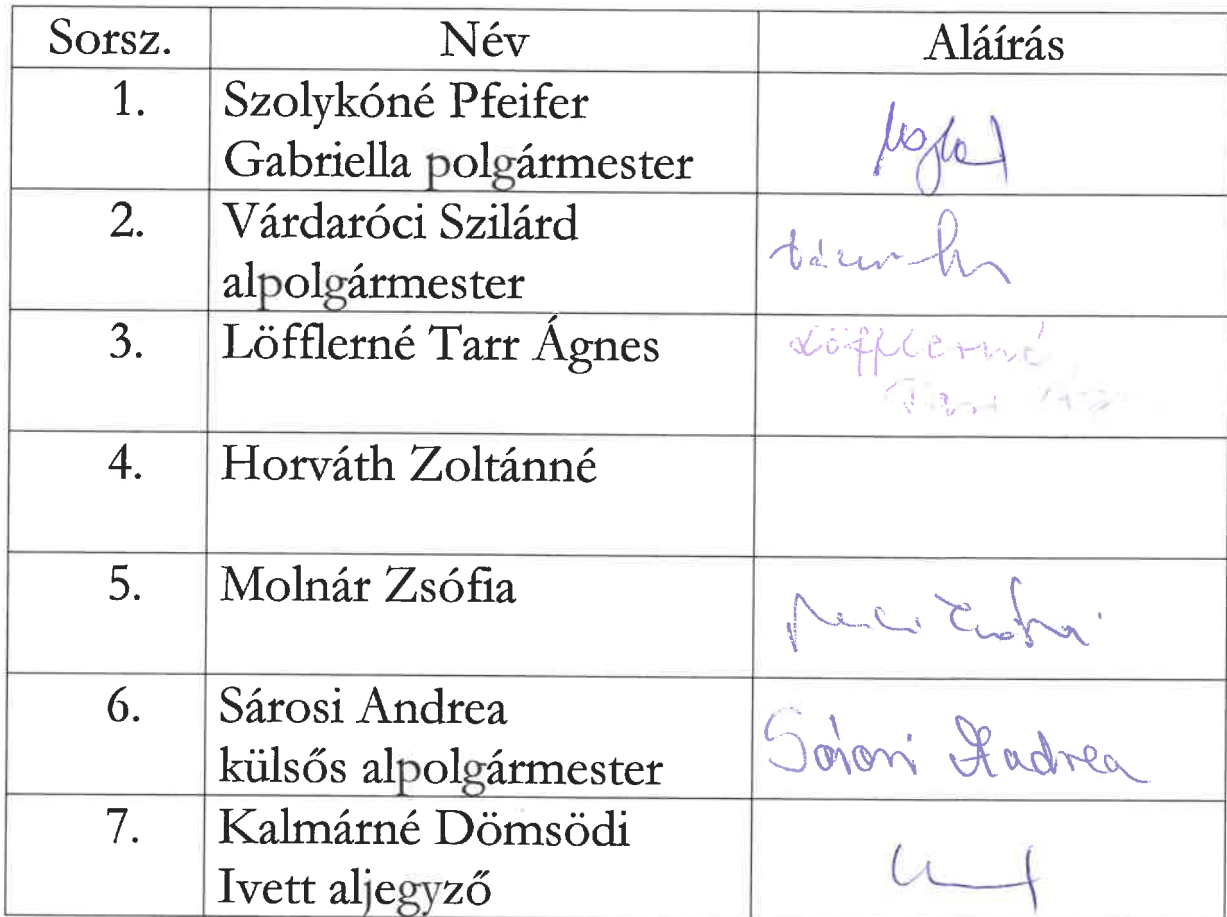 Sorsz. Név Aláírás
1. Szolykóné Pfeifer
Gabriella polgármester
2. Várdaróci Szilárd
alpolgármester
3. Löfflerné Tarr Ágnes Löfflerné
Tarr
4. Horváth Zoltánné
5. Molnár Zsófia
6. Sárosi Andrea Sárosi Andrea
külsős alpolgármester
7. Kalmárné Dömsödi
Ivett aljegyző